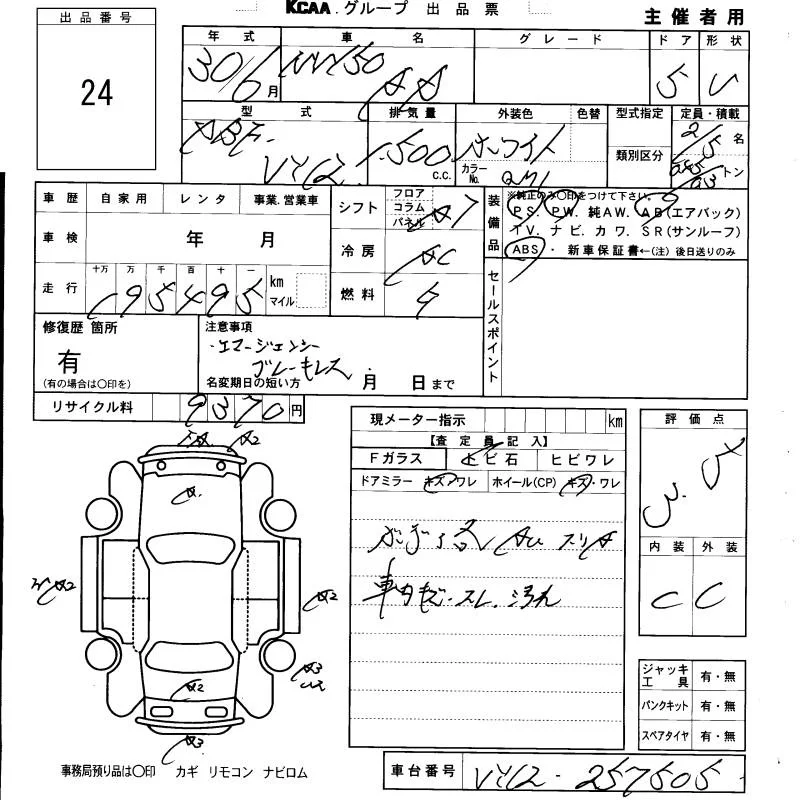 KCAA.グループ 出品票
主催者用
出品番号
24
年式 車名 グレード ドア 形状
30/6月 NV150 AD 5 V
型式 排気量 外装色 色替 型式指定 定員・積載
DBF- VY12 1,500 C.C. ホワイト 類別区分 2/5名
カラーNo. QM1 トン
車歴 自家用 レンタ 事業.営業車
車検 年 月
走行 十万 万 千 百 十 一
195495 km マイル
シフト フロア コラム パネル AT
冷房 AC
燃料
装備品
※純正のみ〇印をつけて下さい。
PS. PW. 純AW. AB(エアバック)
TV. ナビ. カワ. SR(サンルーフ)
ABS・ 新車保証書←(注) 後日送りのみ
セールスポイント
修復歴 箇所
有
(有の場合は〇印を)
注意事項
・エマージェンシー
ブレーキレス
名変期日の短い方 月 日まで
リサイクル料 9370円
現メーター指示 km
【査定員記入】
Fガラス ヒビ石 ヒビワレ
ドアミラー キズ・ワレ ホイール(CP) キズ・ワレ
車内キズ・スレ.汚れ
評価点
3.5
内装 外装
C C
A2
A2
A2
A2
A3
A3
ジャッキ工具 有・無
パンクキット 有・無
スペアタイヤ 有・無
事務局預り品は〇印 カギ リモコン ナビロム
車台番号 VY12-257505